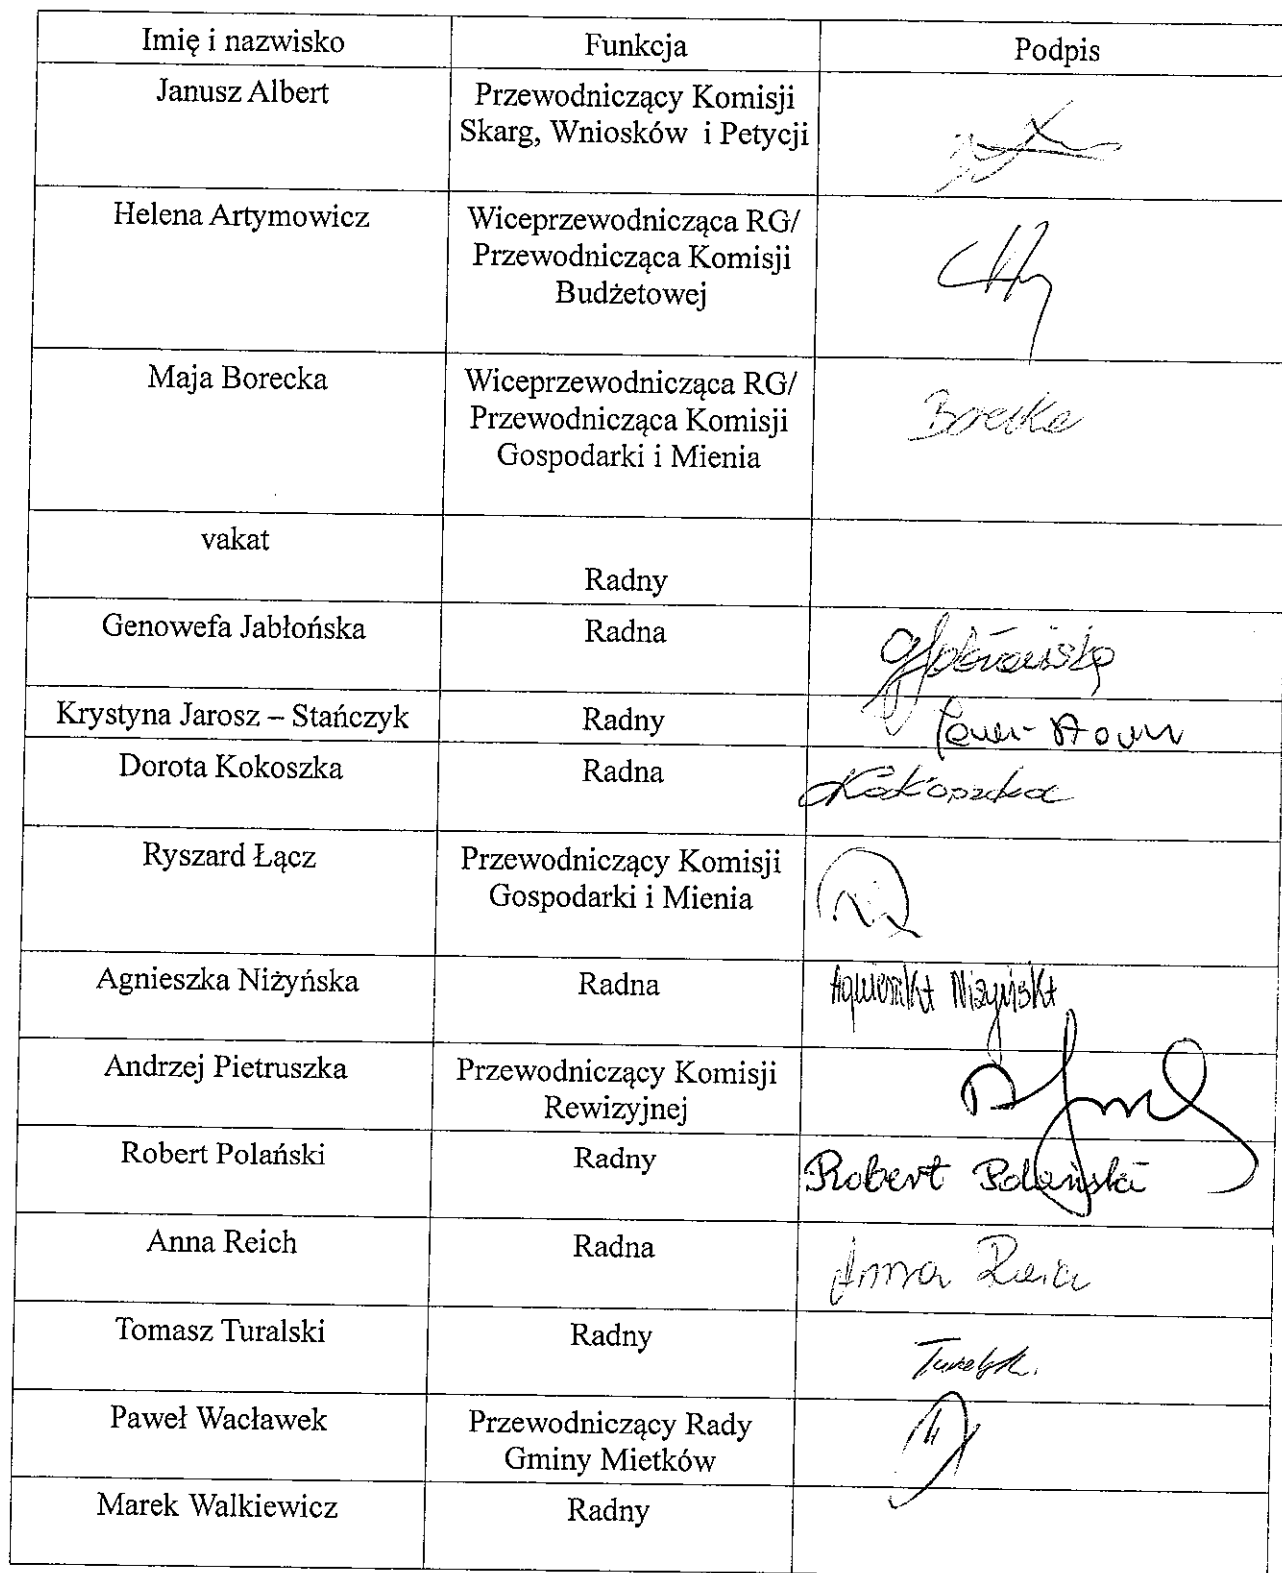 Imię i nazwisko Funkcja Podpis
Janusz Albert Przewodniczący Komisji
Skarg, Wniosków i Petycji
Helena Artymowicz Wiceprzewodnicząca RG/
Przewodnicząca Komisji
Budżetowej
Maja Borecka Wiceprzewodnicząca RG/
Przewodnicząca Komisji Borecka
Gospodarki i Mienia
vakat
Radny
Genowefa Jabłońska Radna
Krystyna Jarosz – Stańczyk Radny
Dorota Kokoszka Radna Kokoszka
Ryszard Łącz Przewodniczący Komisji
Gospodarki i Mienia
Agnieszka Niżyńska Radna Agnieszka Niżyńska
Andrzej Pietruszka Przewodniczący Komisji
Rewizyjnej
Robert Polański Radny Robert Polański
Anna Reich Radna Anna Reich
Tomasz Turalski Radny
Paweł Wacławek Przewodniczący Rady
Gminy Mietków
Marek Walkiewicz Radny